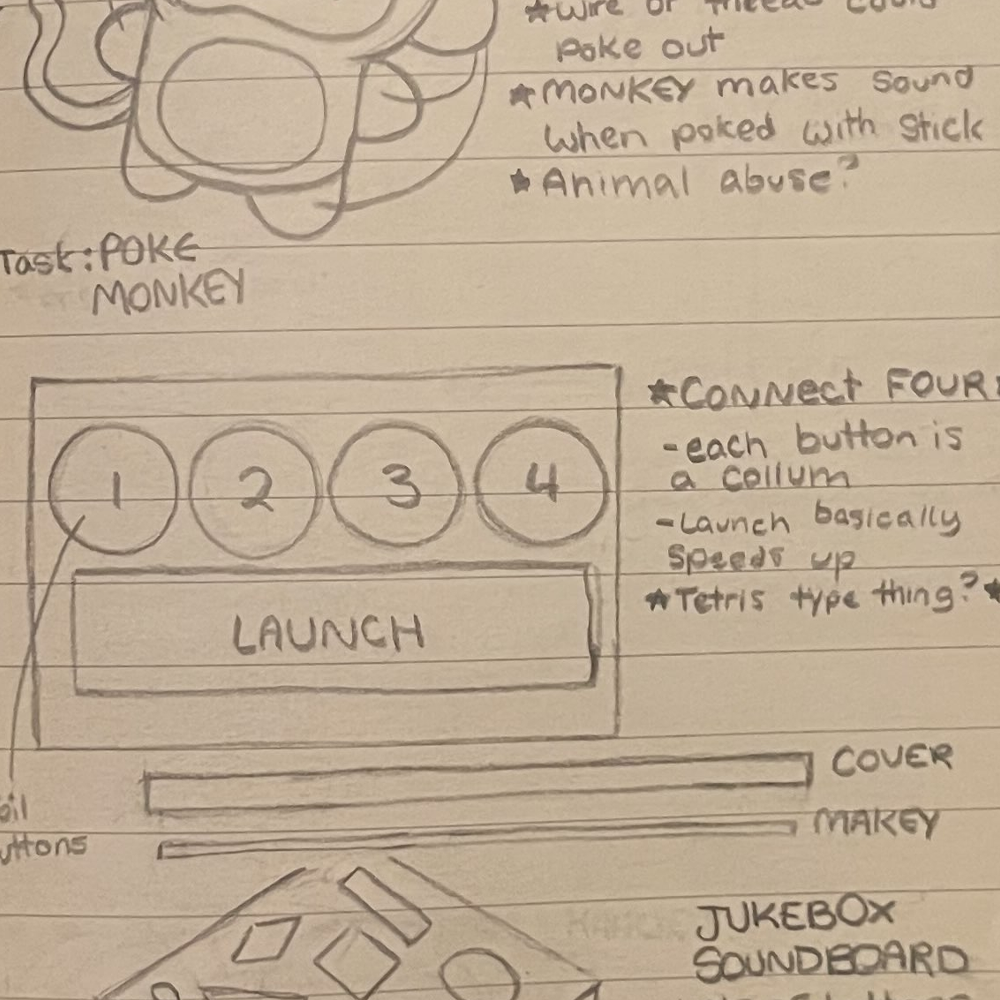 ★wire or thread could
poke out
★MONKEY makes sound
when poked with stick
★Animal abuse?
Task: POKE
MONKEY
★CONNect FOUR:
-each button is
a collum
-Launch basically
speeds up
★Tetris type thing?★
1 2 3 4
LAUNCH
COVER
MAKEY
oil
uttons
JUKEBOX
SOUNDBOARD